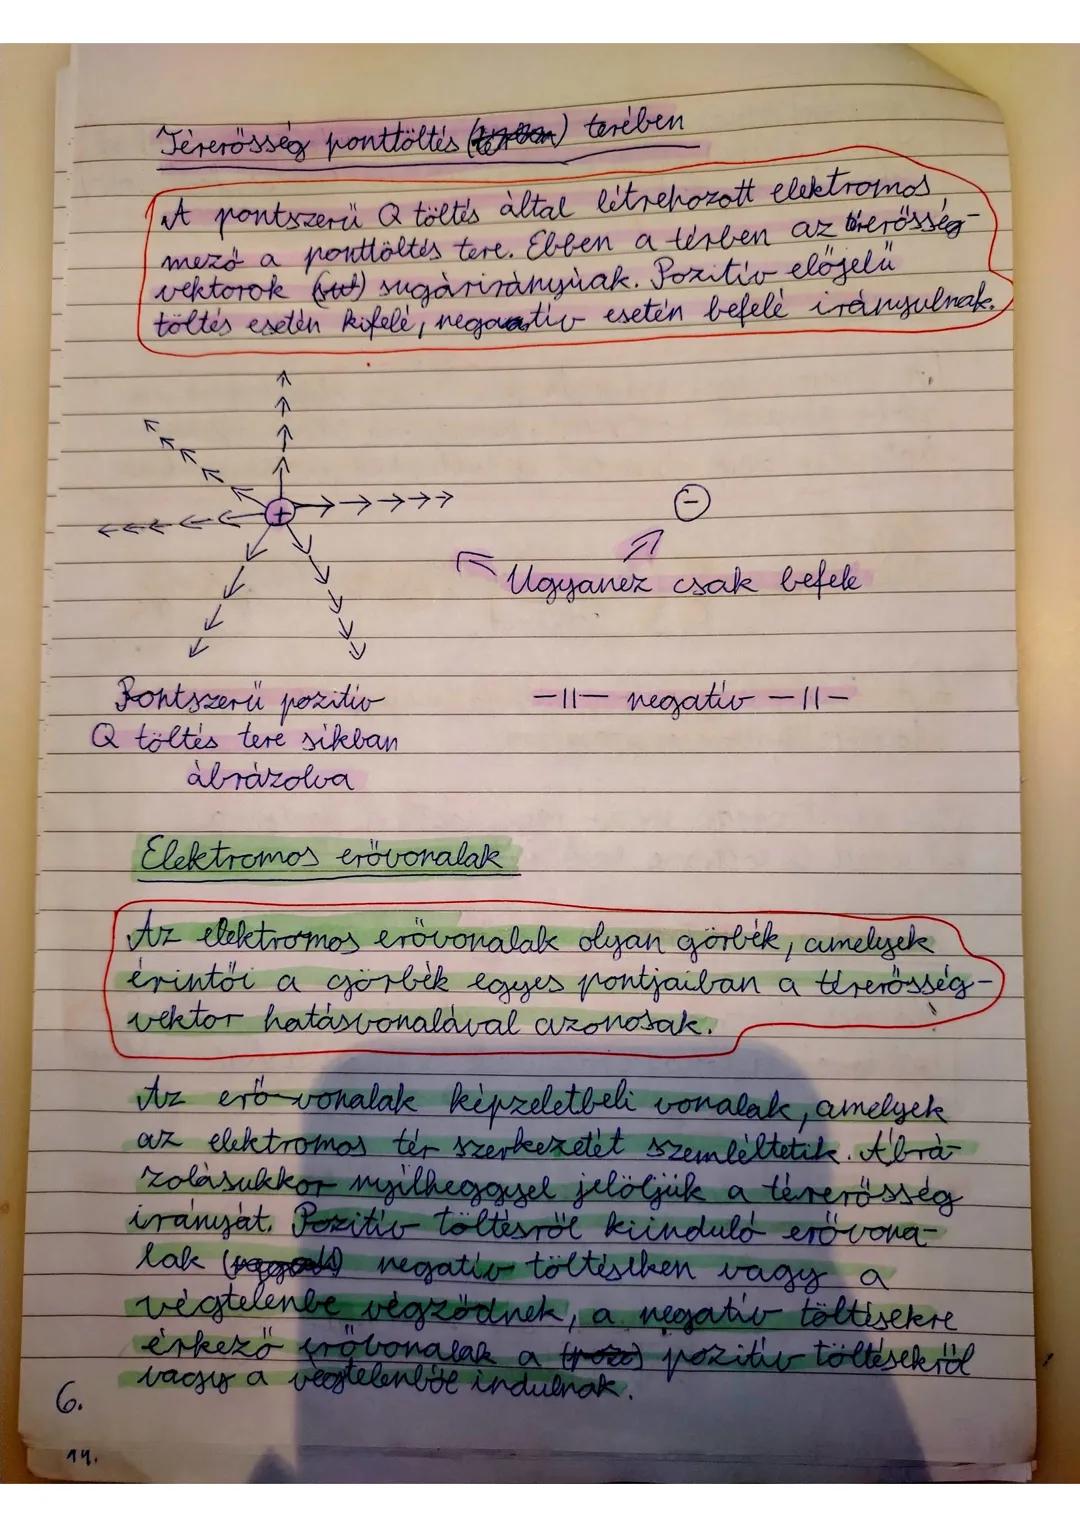 Térerősség ponttöltés terében
A pontszerű Q töltés által létrehozott elektromos
mező a ponttöltés tere. Ebben a térben az térerősség-
vektorok sugárirányúak. Pozitív előjelű
töltés esetén kifelé, negatív esetén befelé irányulnak.
+
-
Ugyanez csak befele
Pontszerű pozitív
Q töltés tere síkban
ábrázolva
-||- negatív -||-
Elektromos erővonalak
Az elektromos erővonalak olyan görbék, amelyek
érintői a görbék egyes pontjaiban a térerősség-
vektor hatásvonalával azonosak.
Az erővonalak képzeletbeli vonalak, amelyek
az elektromos tér szerkezetét szemléltetik. Ábrá-
zolásukkor nyílheggyel jelöljük a térerősség
irányát. Pozitív töltésről kiinduló erővona-
lak negatív töltéseken vagy a
végtelenbe végződnek, a negatív töltésekre
érkező erővonalak a pozitív töltésekről
vagy a végtelenből indulnak.
6.
14.